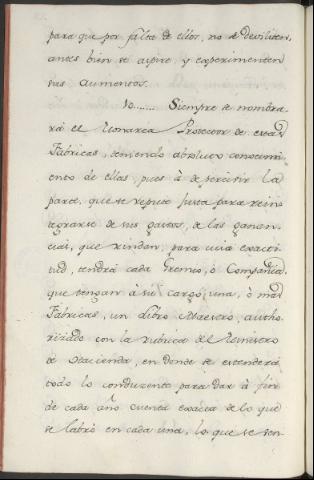 para que por falta de ellos, no se deviliten,
antes bien se aspire, y experimenten
sus aumentos.
10....... Siempre se nombra-
rá el Monarca Protector de estas
Fabricas, teniendo absoluto conocimi-
ento de ellas, pues à de percivir la
parte, que se repute justa para rein-
tegrarse de sus gastos, de las ganan-
cias, que rindan, para cuia exacti-
tud, tendrá cada Gremio, ò Compañia,
que tengan à su cargo, una, ò mas
Fabricas, un Libro Maestro, autho-
rizado con la rubrica del Ministro
de Hacienda, en donde se estenderá
todo lo conduzente para dar à fin
de cada año cuenta exacta de lo que
se labró en cada una, lo que se ven-